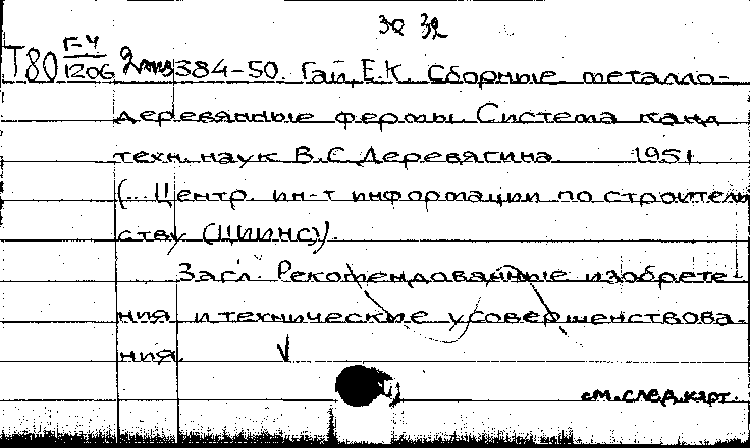 32 32
Т80 Г-4/1206 2 экз 384-50. Гай, Е.К. Сборные металло-
деревянные фермы. Система канд
техн. наук В.С. Деревягина 1951
(... Центр. ин-т информации по строитель
ству (ЦИИНС)).
Загл. Рекомендованные изобрете-
ния и технические усовершенствова-
ния.
см. след. карт.